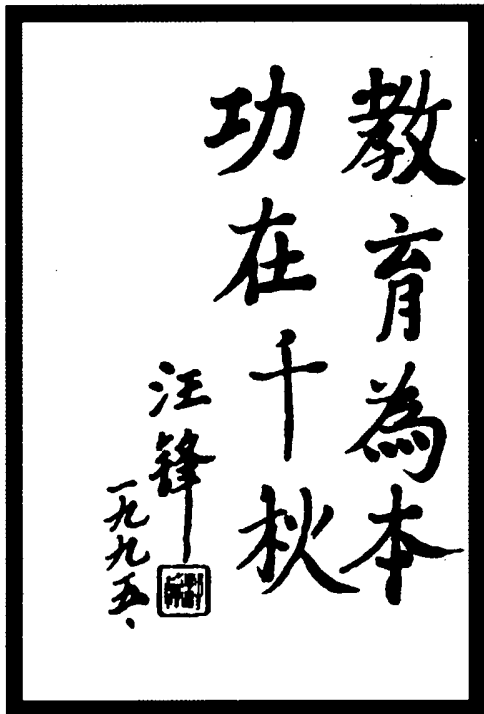 教育為本
功在千秋
汪鋒
一九九五、